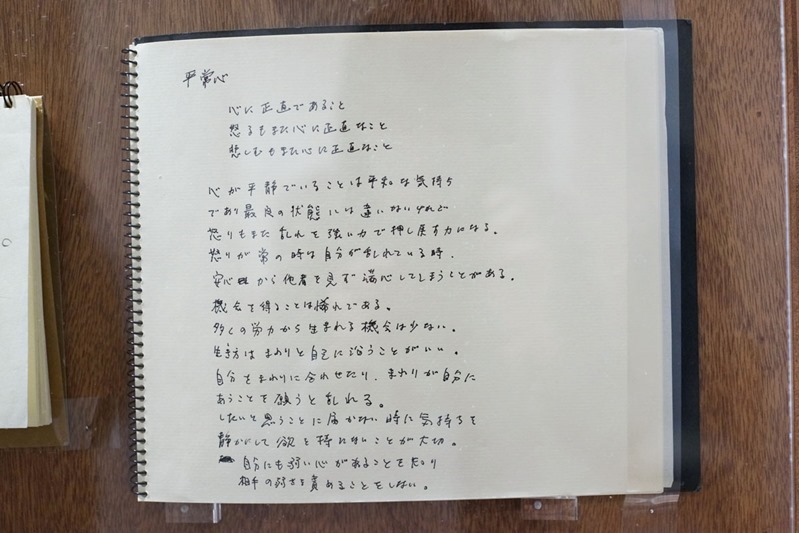 平常心
心に正直であること
怒るもまた心に正直なこと
悲しむもまた心に正直なこと
心が平静でいることは平和な気持ち
であり最良の状態には違いないけれど
怒りもまた乱れを強い力で押し戻す力になる。
怒りが常の時は自分が乱れている時、
安心 から他者を見ず 心してしまうことがある。
機会を得ることは稀れである。
多くの労力から生まれる機会は少ない。
生き方はまわりと自己に沿うことがいい。
自分をまわりに合わせたり、まわりが自分に
あうことを願うと乱れる。
したいと思うことに届かない時に気持ちを
静かにして欲を持たないことが大切。
自分にも弱い心があることを知り
相手の弱さを責めることをしない。